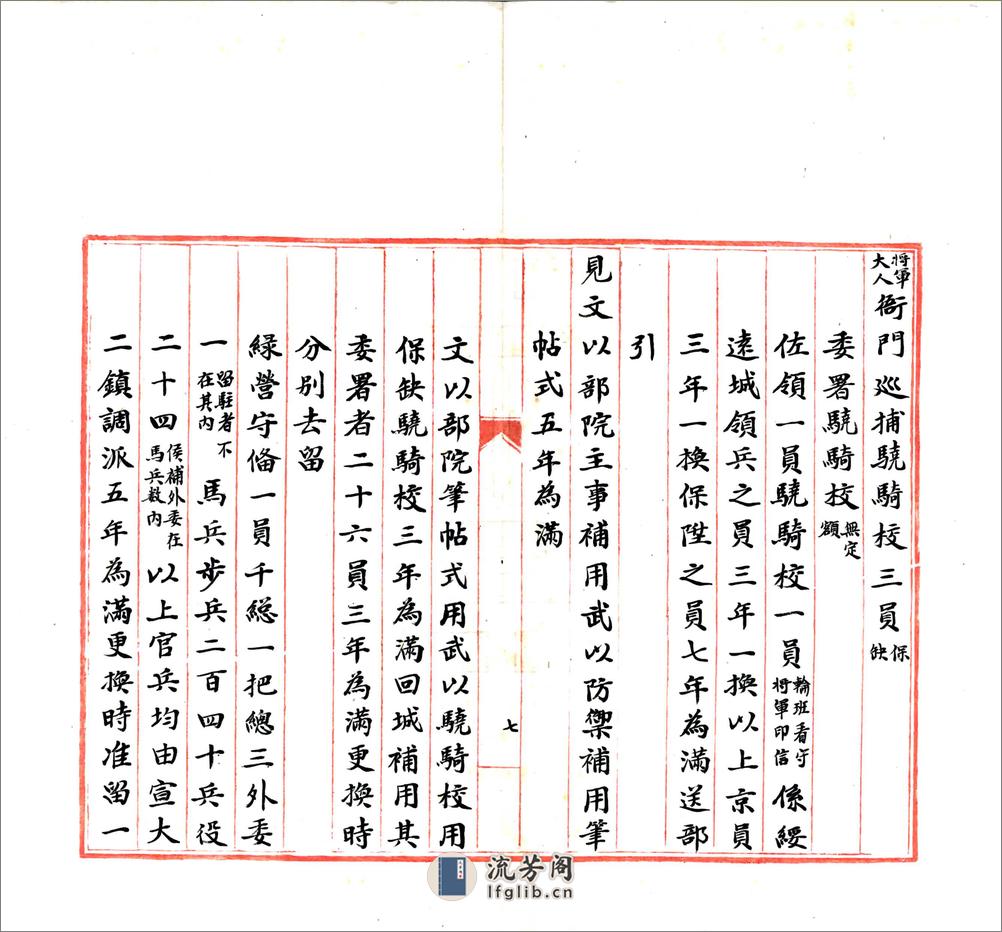 將軍大人衙門巡捕驍騎校三員保缺
委署驍騎校無定額
佐領一員驍騎校一員輪班看守將軍印信係綏
遠城領兵之員三年一換以上京員
三年一換保陞之員七年為滿送部
引
見文以部院主事補用武以防禦補用筆
帖式五年為滿
七
文以部院筆帖式用武以驍騎校用
保缺驍騎校三年為滿回城補用其
委署者二十六員三年為滿更換時
分別去留
綠營守備一員千総一把總三外委
一留駐者不在其內馬兵步兵二百四十兵役
二十四候補外委在馬兵數內以上官兵均由宣大
二鎮調派五年為滿更換時准留一
流芳阁
lfglib.cn